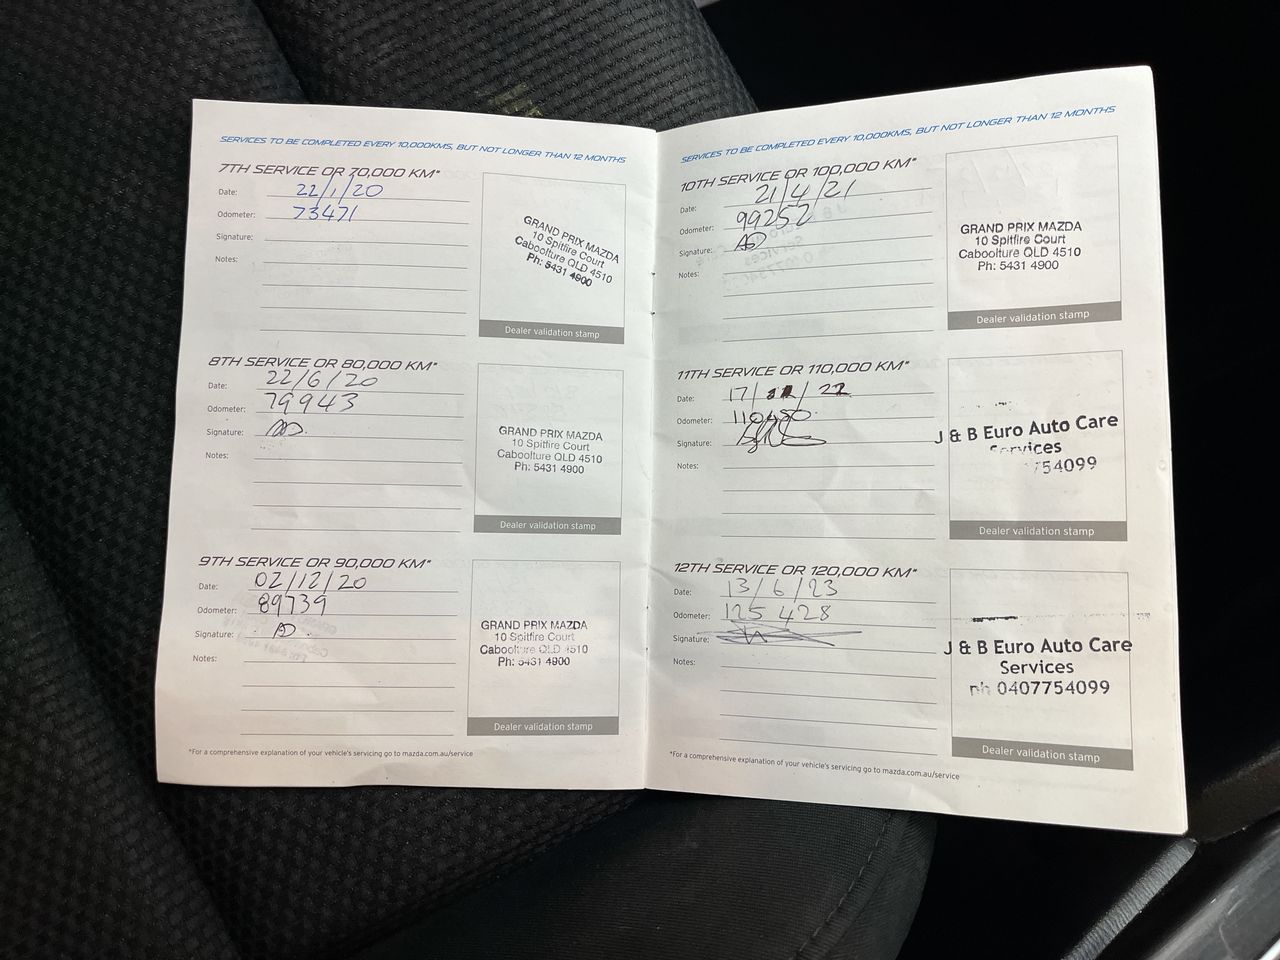 SERVICES TO BE COMPLETED EVERY 10,000KMS, BUT NOT LONGER THAN 12 MONTHS
7TH SERVICE OR 70,000 KM*
Date: 22/1/20
Odometer: 73471
Signature:
Notes:
GRAND PRIX MAZDA
10 Spitfire Court
Caboolture QLD 4510
Ph: 5431 4900
Dealer validation stamp
8TH SERVICE OR 80,000 KM*
Date: 22/6/20
Odometer: 79943
Signature:
Notes:
GRAND PRIX MAZDA
10 Spitfire Court
Caboolture QLD 4510
Ph: 5431 4900
Dealer validation stamp
9TH SERVICE OR 90,000 KM*
Date: 02/12/20
Odometer: 89739
Signature:
Notes:
GRAND PRIX MAZDA
10 Spitfire Court
Caboolture QLD 4510
Ph: 5431 4900
Dealer validation stamp
*For a comprehensive explanation of your vehicle's servicing go to mazda.com.au/service
SERVICES TO BE COMPLETED EVERY 10,000KMS, BUT NOT LONGER THAN 12 MONTHS
10TH SERVICE OR 100,000 KM*
Date: 21/4/21
Odometer: 99252
Signature:
Notes:
GRAND PRIX MAZDA
10 Spitfire Court
Caboolture QLD 4510
Ph: 5431 4900
Dealer validation stamp
11TH SERVICE OR 110,000 KM*
Date: 17/ / 22
Odometer:
Signature:
Notes:
J & B Euro Auto Care
Services
754099
Dealer validation stamp
12TH SERVICE OR 120,000 KM*
Date: 13/6/23
Odometer: 125 428
Signature:
Notes:
J & B Euro Auto Care
Services
ph 0407754099
Dealer validation stamp
*For a comprehensive explanation of your vehicle's servicing go to mazda.com.au/service